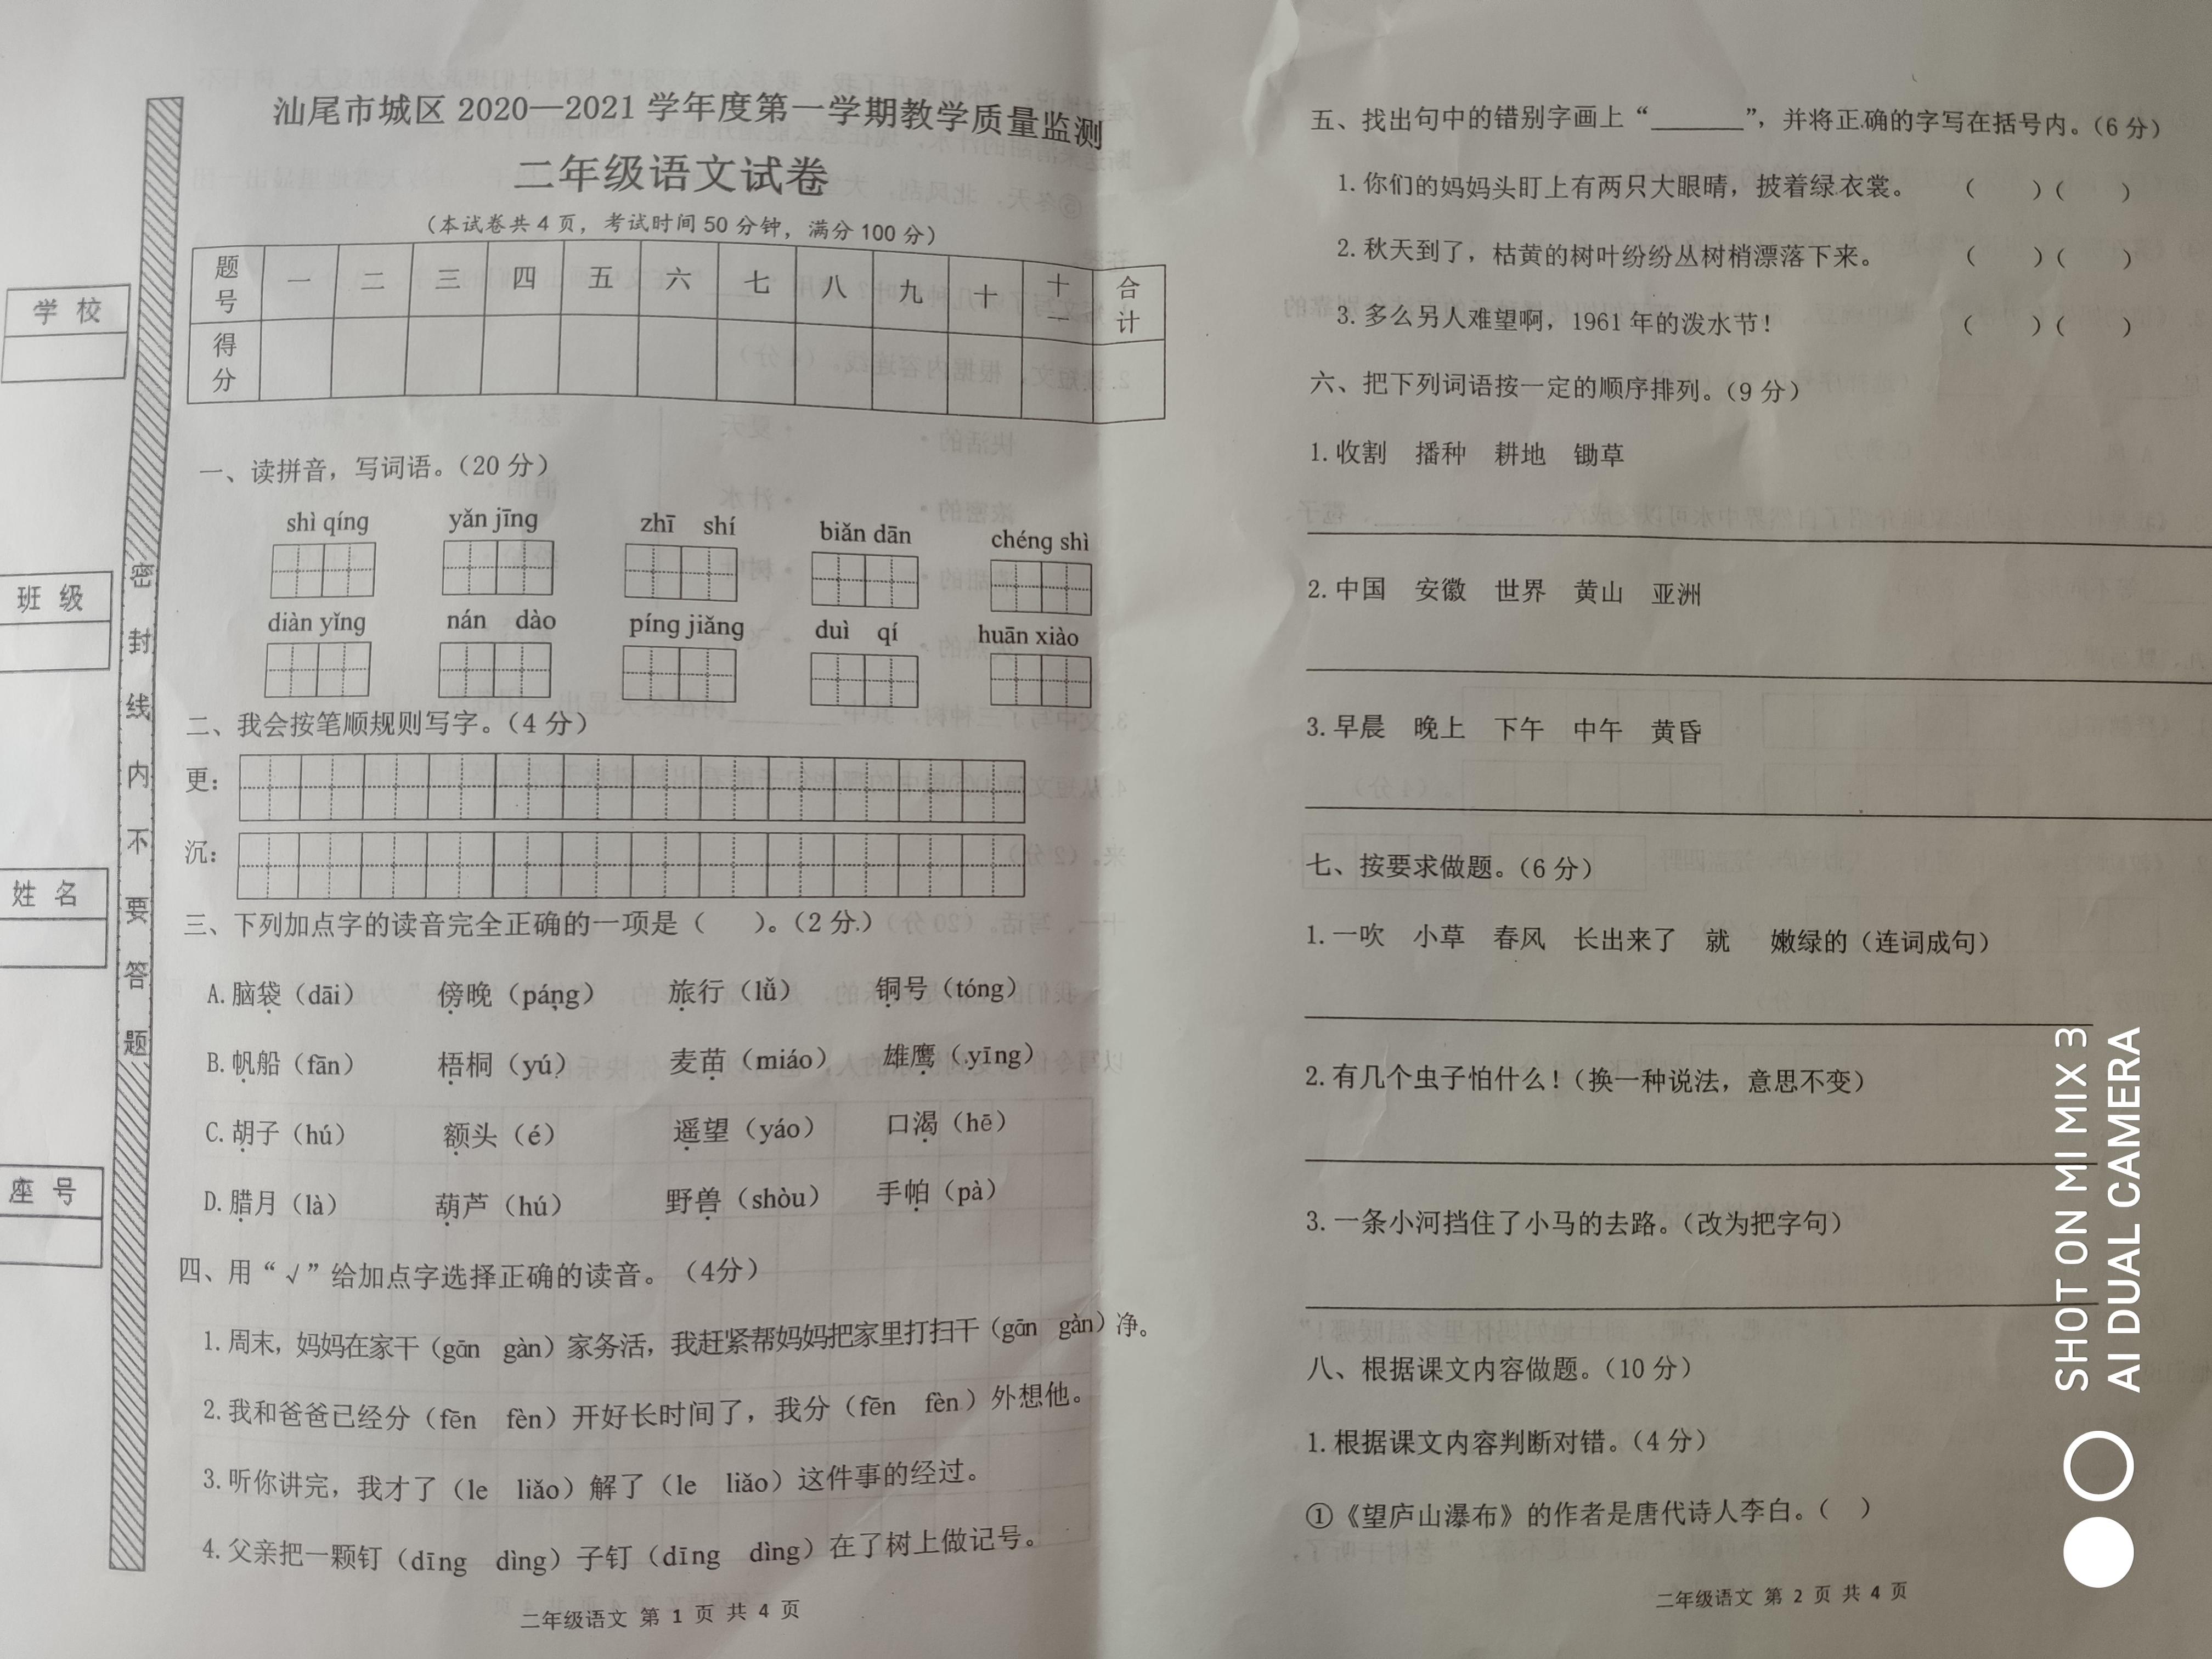 汕尾市城区 2020—2021 学年度第一学期教学质量监测
二年级语文试卷
（本试卷共 4 页，考试时间 50 分钟，满分 100 分）
题号 一 二 三 四 五 六 七 八 九 十 十一 合计
得分
学 校
班 级
姓 名
座 号
密封线内不要答题
一、读拼音，写词语。（20 分）
shì qíng yǎn jīng zhī shí biǎn dān chéng shì
diàn yǐng nán dào píng jiǎng duì qí huān xiào
二、我会按笔顺规则写字。（4 分）
更：
沉：
三、下列加点字的读音完全正确的一项是（ ）。（2 分.）
A. 脑袋（dāi） 傍晚（páng） 旅行（lǚ） 铜号（tóng）
B. 帆船（fān） 梧桐（yú） 麦苗（miáo） 雄鹰（yīng）
C. 胡子（hú） 额头（é） 遥望（yáo） 口渴（hē）
D. 腊月（là） 葫芦（hú） 野兽（shòu） 手帕（pà）
四、用“ √ ”给加点字选择正确的读音。（4分）
1. 周末，妈妈在家干（gān gàn）家务活，我赶紧帮妈妈把家里打扫干（gān gàn）净。
2. 我和爸爸已经分（fēn fèn）开好长时间了，我分（fēn fèn）外想他。
3. 听你讲完，我才了（le liǎo）解了（le liǎo）这件事的经过。
4. 父亲把一颗钉（dīng dìng）子钉（dīng dìng）在了树上做记号。
二年级语文 第 1 页 共 4 页
五、找出句中的错别字画上“______”，并将正确的字写在括号内。（6 分）
1. 你们的妈妈头盯上有两只大眼晴，披着绿衣裳。 （ ）（ ）
2. 秋天到了，枯黄的树叶纷纷丛树梢漂落下来。 （ ）（ ）
3. 多么另人难望啊，1961 年的泼水节！ （ ）（ ）
六、把下列词语按一定的顺序排列。（9 分）
1. 收割 播种 耕地 锄草
2. 中国 安徽 世界 黄山 亚洲
3. 早晨 晚上 下午 中午 黄昏
七、按要求做题。（6 分）
1. 一吹 小草 春风 长出来了 就 嫩绿的（连词成句）
2. 有几个虫子怕什么！（换一种说法，意思不变）
3. 一条小河挡住了小马的去路。（改为把字句）
八、根据课文内容做题。（10 分）
1. 根据课文内容判断对错。（4 分）
①《望庐山瀑布》的作者是唐代诗人李白。（ ）
二年级语文 第 2 页 共 4 页
SHOT ON MI MIX 3
AI DUAL CAMERA